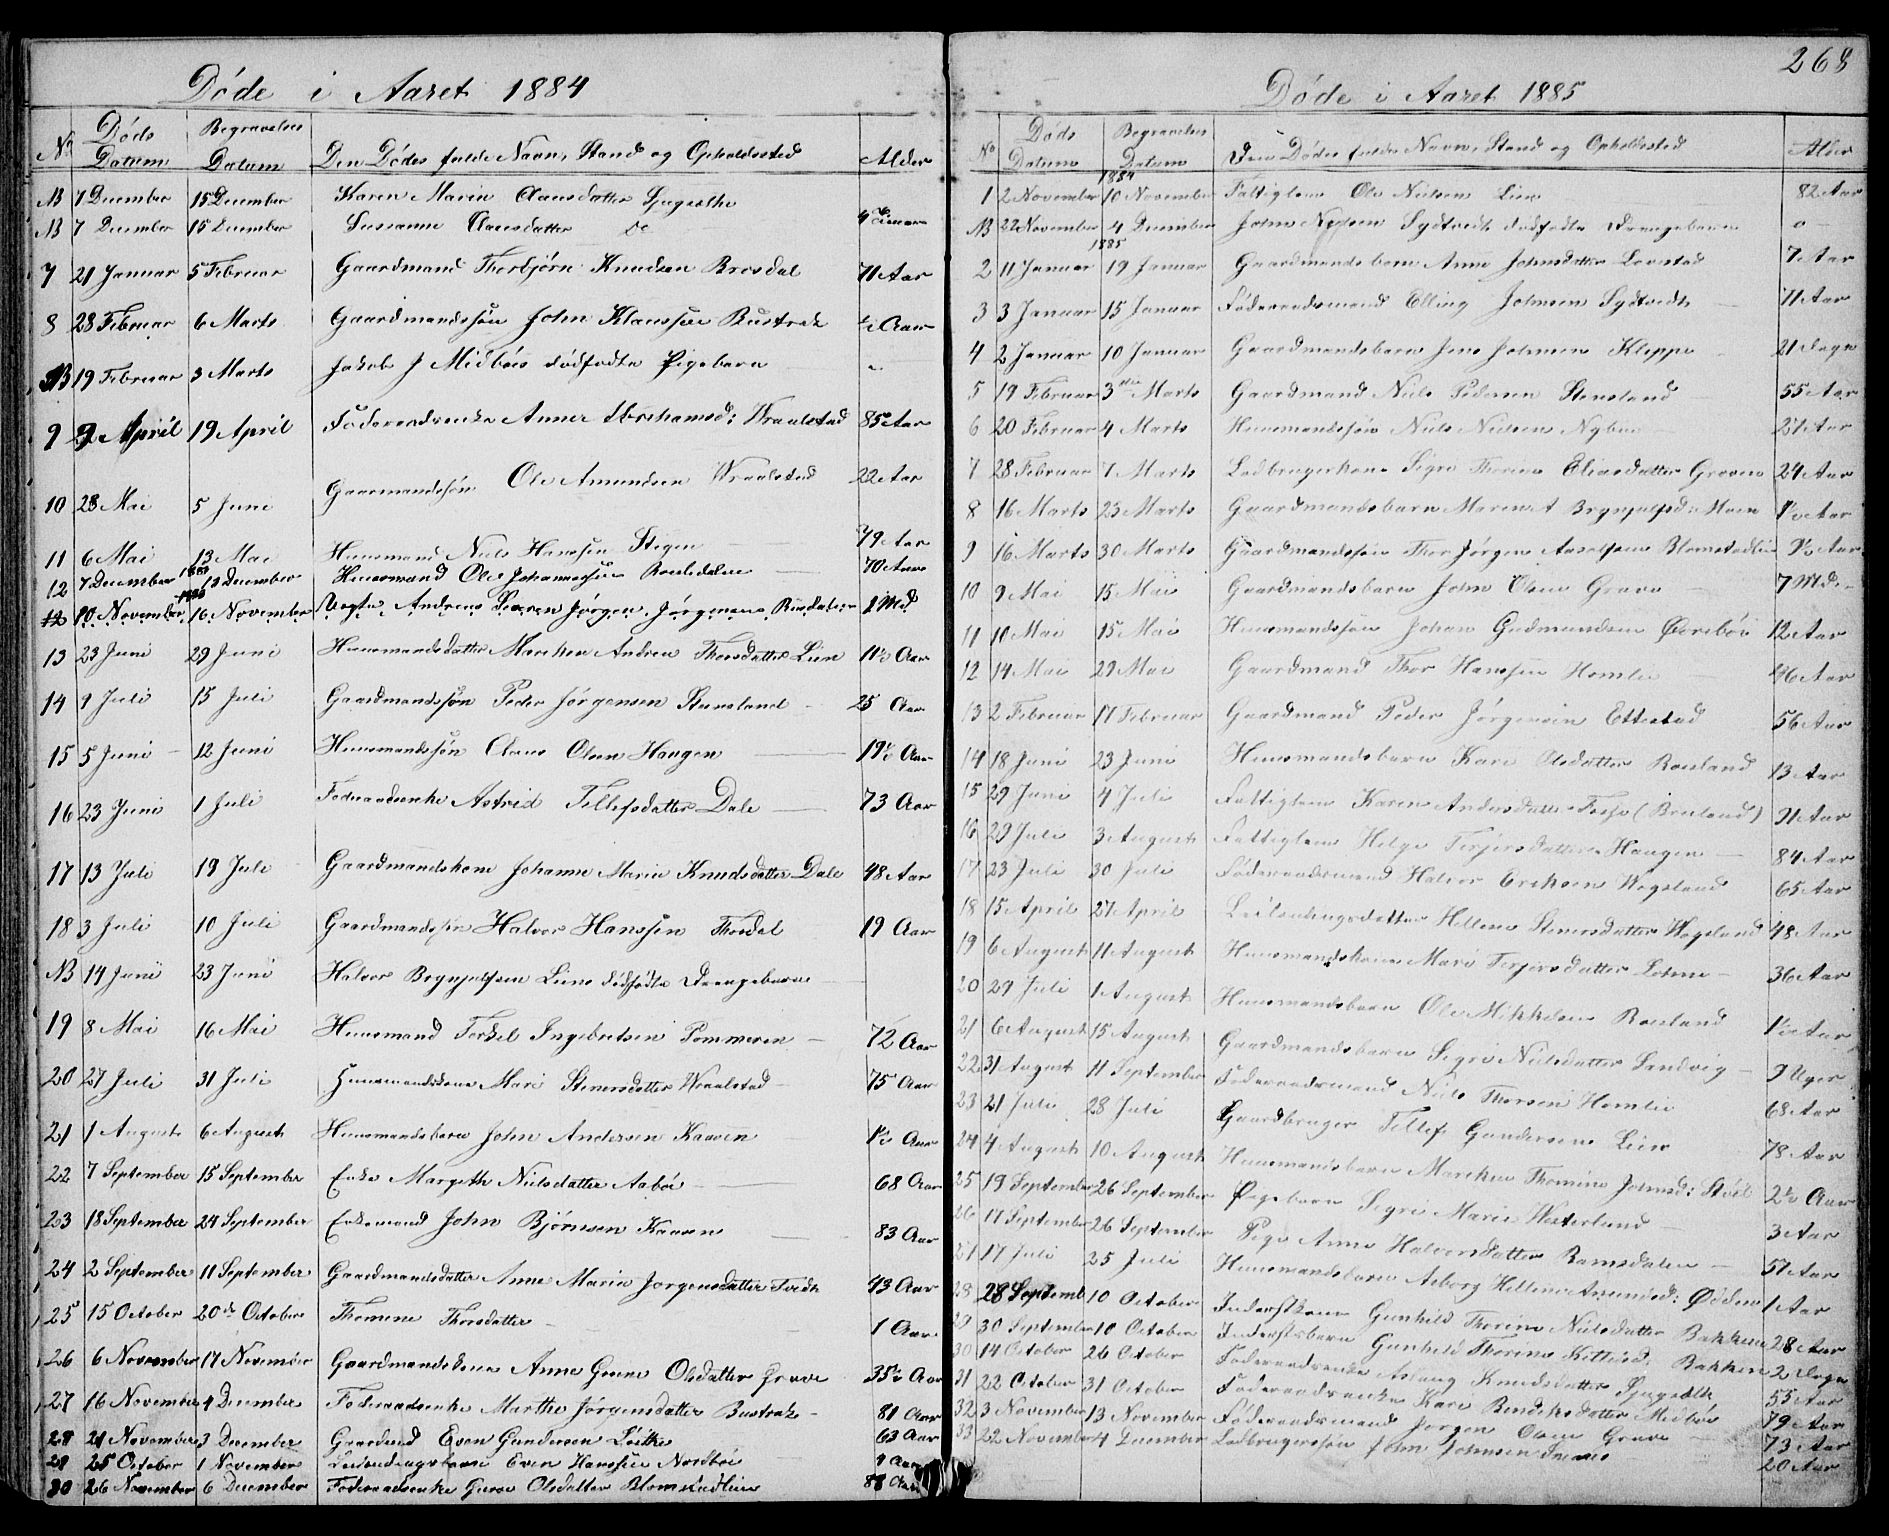 Døde i Aaret 1884
No Døds Datum Begravelses Datum Den Dødes fulde Navn, Stand og Opholdssted Alder
NB 7 December 15 December Karen Marie Clausdatter
NB 7 December 15 December Susanne Clausdatter do
7 21 Januar 5 Februar Gaardmand Thorbjørn Knudsen Brosdal 71 Aar
8 28 Februar 6 Marts Gaardmandssøn John Klaussen Bustrak ½ Aar
NB 19 Februar 3 Marts Jakob J Midbøes dødfødte Pigebarn
9 9 April 19 April Føderaadsenke Anne Abrahamsd: Wraalstad 85 Aar
10 28 Mai 5 Juni Gaarmandssøn Ole Amundsen Wraalstad 22 Aar
11 6 Mai 13 Mai Huusmand Niels Hanssen Stegen 79 Aar
12 7 December 13 December Huusmand Ole Johannessen 70 Aar
12 10 November 16 November Andreas Jørgen Jørgensens 1 Md
13 23 Juni 29 Juni Huusmandsdatter Marthea Andrea Thorsdatter Lien 11½ Aar
14 9 Juli 15 Juli Gaardmandssøn Peder Jørgensen Stensland 25 Aar
15 5 Juni 12 Juni Huusmandssøn Claus Olsen Haugen 19½ Aar
16 23 Juni 1 Juli Føderaadsenke Astrid Tellefsdatter Dale 73 Aar
17 13 Juli 19 Juli Gaardmandskone Johanne Marie Knudsdatter Dale 48 Aar
18 3 Juli 10 Juli Gaardmandssøn Halvor Hanssen Thordal 19 Aar
NB 14 Juni 23 Juni Halvor Brynjulfsen Liens dødfødte Drengebarn
19 8 Mai 16 Mai Huusmand Terkel Ingebretsen Pommeren 72 Aar
20 27 Juli 31 Juli Huusmandskone Mari Stenersdatter Wraalstad 75 Aar
21 1 August 6 August Huusmandsbarn John Andersen Kaaven 1½ Aar
22 7 September 15 September Enke Margith Nielsdatter Aabøe 68 Aar
23 18 September 24 September Enkemand John Bjørnsen Kaaven 83 Aar
24 2 September 11 September Gaardmandsdatter Anne Maria Jørgensdatter Tvedt 43 Aar
25 15 October 20de October Thomine Thorsdatter 1 Aar
26 6 November 17 November Gaardmandskone Anne Gurine Olsdatter Grave 35½ Aar
27 16 November 4 December Føderaadsenke Marthe Jørgensdatter Bustrak 81 Aar
28 21 November 3 December Even Gundersen 63 Aar
29 25 October 1 November Even Hanssen Nordbøe Aar
30 26 November 6 December Føderaadsenke Guroe Olsdatter Blomstadlien 88 Aar
268
Døde i Aaret 1885
No Døds Datum Begravelses Datum Den Dødes fulde Navn, Stand og Opholdssted Alder
1884
1 2 November 10 November Fattiglem Ole Nielsen Lien 82 Aar
NB 22 November 4 December John Nielsen Sydtvedts dødfødte Drengebarn 0
1885
2 11 Januar 19 Januar Gaardmandsbarn Anne Johnsdatter Lovstad 7 Aar
3 3 Januar 15 Januar Føderaadsmand Elling Johnsen Sydtvedt 71 Aar
4 2 Januar 10 Januar Gaardmandsbarn Jens Johnsen Kleppe 21 Dage
5 19 Februar 3die Marts Gaardmand Niels Pedersen Stensland 55 Aar
6 20 Februar 4 Marts Huusmandssøn Niels Nielsen Nybue Aar
7 28 Februar 7 Marts Ladbrugerkone Sigri Thorine Eliasdatter Graven 24 Aar
8 16 Marts 23 Marts Gaardmandsbarn Marent Brynjulfsd: Moen 1½ Aar
9 16 Marts 30 Marts Gaardmandssøn Thor Jørgen Anselsen Blomstadlien 9½ Aar
10 9 Mai 15 Mai Gaardmandsbarn John Olsen Grave 7 Md.
11 10 Mai 15 Mai Huusmandssøn Johan Gudmundsen Øverbøe 12 Aar
12 14 Mai 29 Mai Gaardmand Thor Hanssen Homlie Aar
13 2 Februar 17 Februar Gaardmand Peder Jørgensen Ettestad 56 Aar
14 18 Juni 23 Juni Huusmandsbarn Kari Olsdatter Rosland 13 Aar
15 29 Juni 4 Juli Fattiglem Karen Andersdatter 91 Aar
16 29 Juli 3 August Fattiglem Helge Terjersdatter Haugen 84 Aar
17 23 Juli 30 Juli Føderaadsmand Halvor Ericksen Wegsland 65 Aar
18 15 April 27 April Leilændingsdatter Hellene Stenersdatter Wegsland 48 Aar
19 6 August 11 August Huusmandskone Mari Terjersdatter 36 Aar
20 27 Juli 1 August Huusmandsbarn Ole Mikkelsen Rosland 1½ Aar
21 6 August 15 August Gaardmandsbarn Sigri Nielsdatter Sandvig 9 Uger
22 31 August 11 September Føderaadsmand Niels Thorsen Homlie 68 Aar
23 21 Juli 28 Juli Gaardbruger Tellef Gundersen Lien 78 Aar
24 4 August 10 August Huusmandsbarn Marthea Thomine Johnsd: 2½ Aar
25 19 September 26 September Pigebarn Sigri Marie Westerlund 3 Aar
26 17 September 26 September Pige Anne Halvorsdatter Ramsdalen Aar
27 17 Juli 25 Juli Huusmandsbarn Asborg Hellene Amundsd: Ødden 1 Aar
28 28 Septemb 10 October Inderstkone Gunhild Thorine Nielsdatter Bakken 28 Aar
29 30 September 10 October Inderstsbarn Gunhild Thorine Kittilsd. Bakken 2 Dage
30 14 October 26 October Føderaadsenke Aslaug Knudsdatter 55 Aar
31 22 October 31 October Føderaadsenke Kari Bendiksdatter Midbøe 79 Aar
32 3 November 13 November Føderaadsmand Jørgen Olsen Grave 73 Aar
33 22 November 4 December Ladbrugerssøn John Johnsen 20 Aar